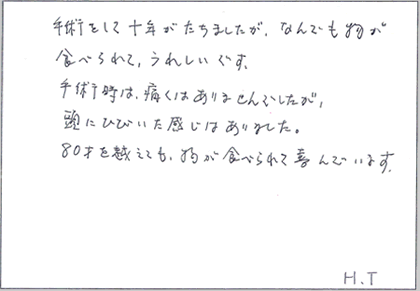 手術をして十年がたちましたが、なんでも物が
食べられて、うれしいです。
手術時は、痛くはありませんでしたが、
頭にひびいた感じはありました。
80才を越えても、物が食べられて喜んでいます。
H.T